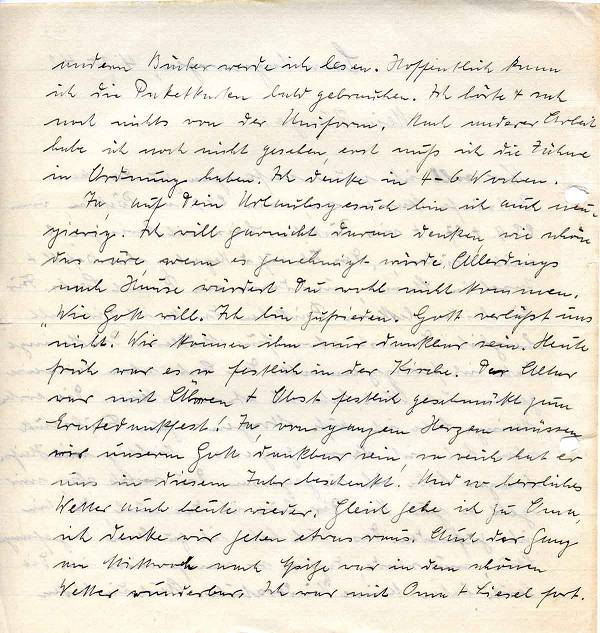 andern Bücher werde ich lesen. Hoffentlich kann
ich die Paketkarten bald gebrauchen. Ich hörte + sah
noch nichts von der Uniform. Nach anderer Arbeit
habe ich noch nicht gesehen, erst muß ich die Zähne
in Ordnung haben. Ich denke in 4-6 Wochen.
Ja, auf Dein Urlaubsgesuch bin ich auch neu-
gierig. Ich will garnicht daran denken, wie schön
das wäre, wenn es genehmigt würde. Allerdings
nach Hause würdest Du wohl nicht kommen.
Wie Gott will. Ich bin zufrieden. Gott verläßt uns
nicht! Wir können ihm nur dankbar sein. Heute
früh war es so festlich in der Kirche. Der Altar
war mit Ähren + Obst festlich geschmückt zum
Erntedankfest! Ja, von ganzem Herzen müssen
wir unserem Gott dankbar sein, so reich hat er
uns in diesem Jahr beschenkt. Und so herrliches
Wetter auch heute wieder. Gleich gehe ich zu Oma,
ich denke wir gehen etwas raus. Auch der Gang
am Mittwoch nach war in dem schönen
Wetter wunderbar. Ich war mit Oma + Liesel fort.